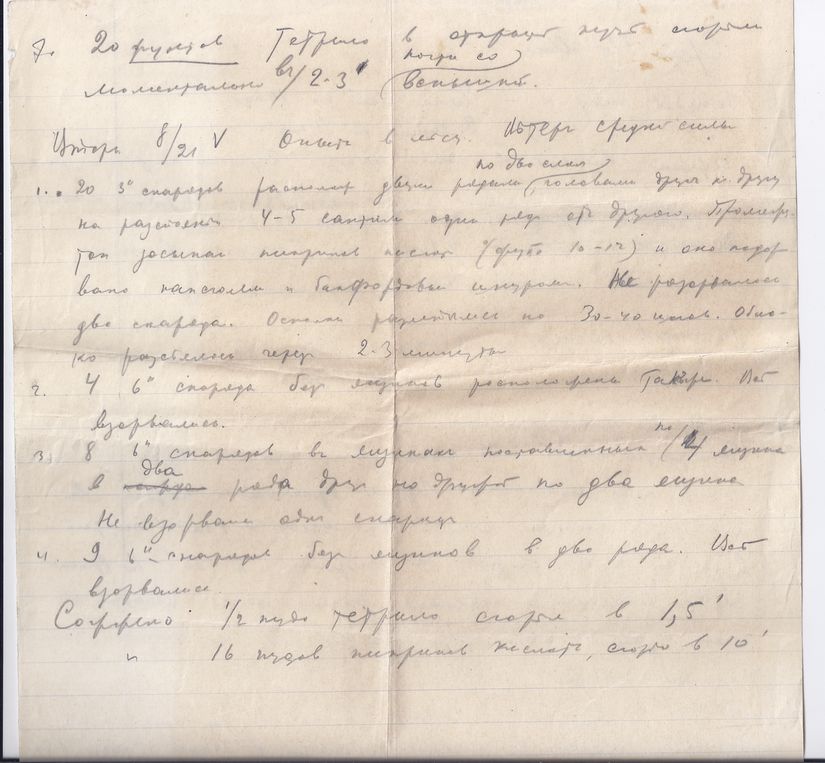 7. 20 фунтов Тетрила в открытой куче сгорели
почти со
моментально въ/2-3' вспышкой.
8/21 V Опыты в лесу. Ветер средней силы
по два слоя
1. 20 3" снарядов располож двумя рядами, головами друг к другу
на разстоянии 4-5 сантим один ряд отъ другого. Промежу-
ток засыпан пикринов кислот (фунто 10-12) и оно подор
вано капсюлем и бикфордовым шнуром. Не разорвалось
два снаряда. Осколки разлетелись на 30-40 шагов. Обла-
ко разсеялось через 2-3 минуты
2. 4 6" снаряда без ящиков расположены также. Все
взорвались.
3. 8 6" снарядов въ ящиках поставленных по/4 ящика
два
в ряда друг на друге по два ящика
Не взорвался один снаряд
4. 9 6" снарядов без ящиков в два ряда. Все
взорвались.
Сожжено 1/2 пуда тетрила сгорел в 1,5'
" 16 пудов пикринов кислоты, сгоро в 10'